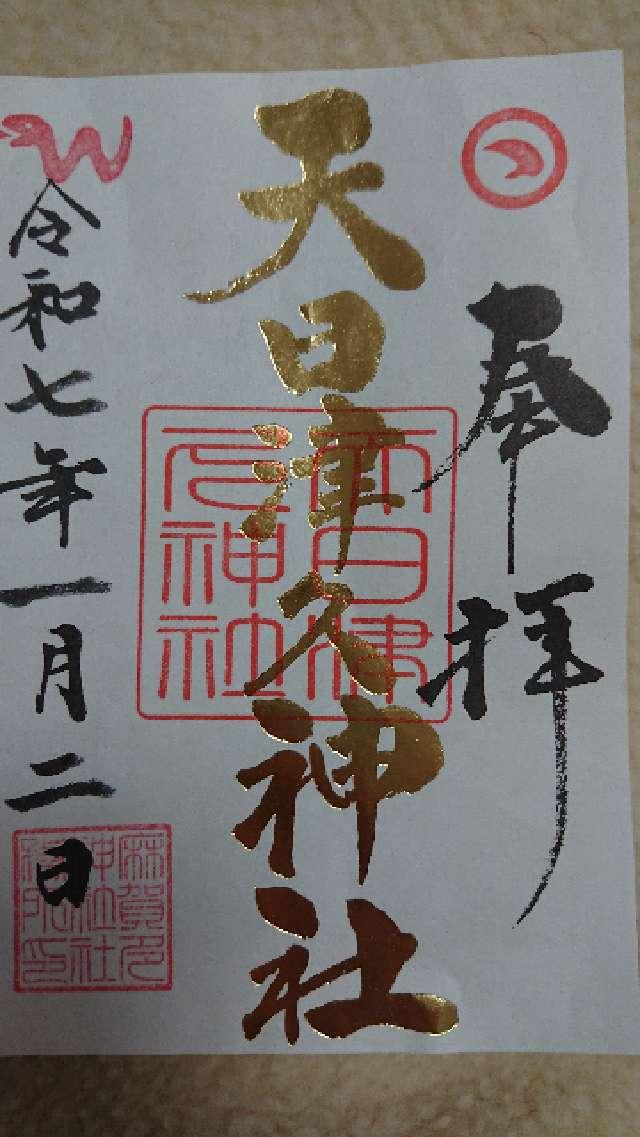 奉拝
天日津久神社
天日津
久神社
令和七年一月二日
麻賀多
神社社
務所印